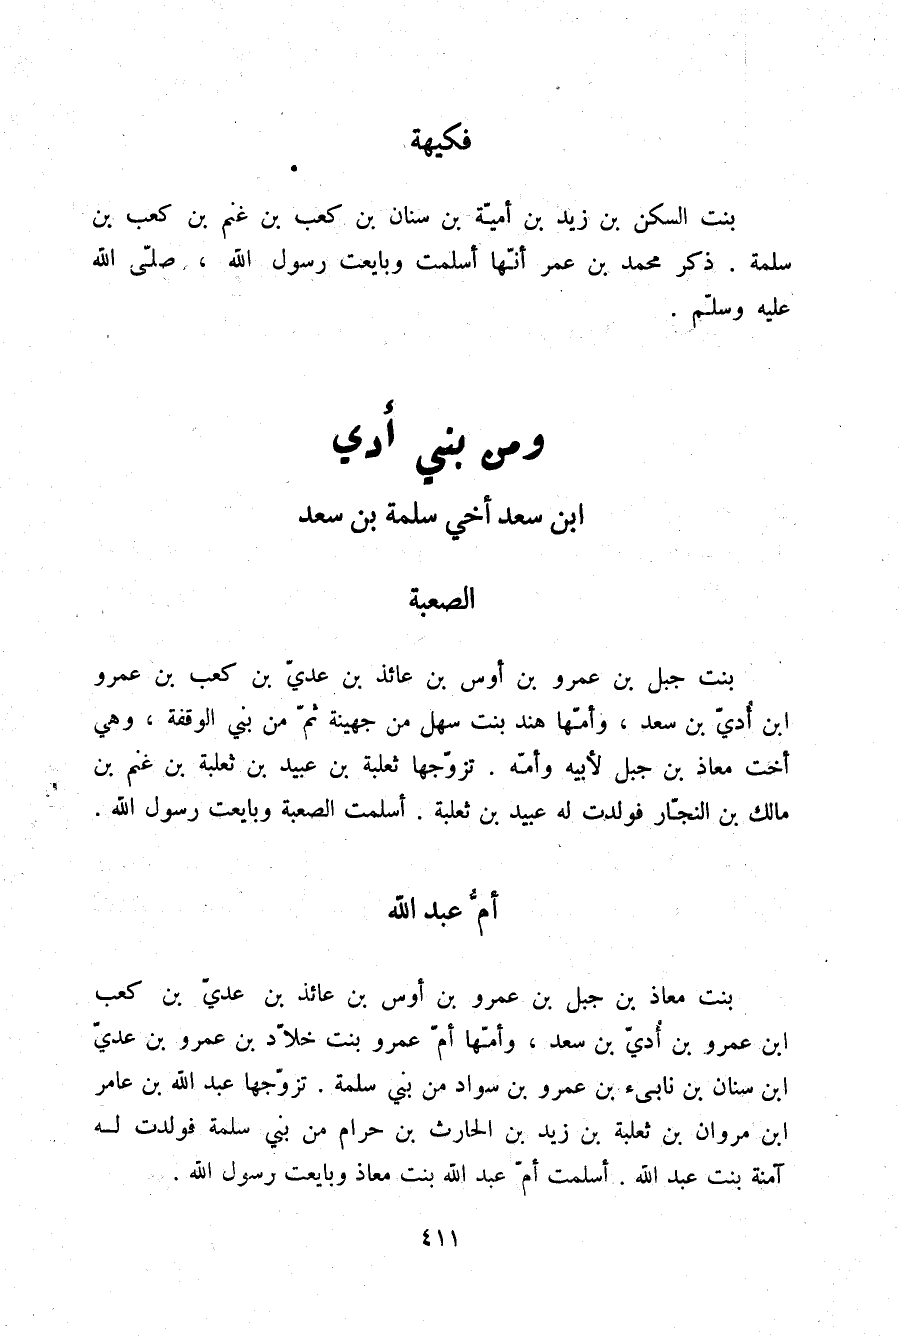 فكيهة
بنت السكن بن زيد بن أميّة بن سنان بن كعب بن غنم بن كعب بن
سلمة . ذكر محمد بن عمر أنّها أسلمت وبايعت رسول الله ، صلّى الله
عليه وسلّم .
ومن بني أُدي
ابن سعد أخي سلمة بن سعد
الصعبة
بنت جبل بن عمرو بن أوس بن عائذ بن عديّ بن كعب بن عمرو
ابن أُديّ بن سعد ، وأمّها هند بنت سهل من جهينة ثمّ من بني الوقفة ، وهي
أخت معاذ بن جبل لأبيه وأمّه . تزوّجها ثعلبة بن عبيد بن ثعلبة بن غنم بن
مالك بن النجّار فولدت له عبيد بن ثعلبة . أسلمت الصعبة وبايعت رسول الله .
أمُّ عبد الله
بنت معاذ بن جبل بن عمرو بن أوس بن عائذ بن عديّ بن كعب
ابن عمرو بن أُديّ بن سعد ، وأمّها أمّ عمرو بنت خلاّد بن عمرو بن عديّ
ابن سنان بن نابىء بن عمرو بن سواد من بني سلمة . تزوّجها عبد الله بن عامر
ابن مروان بن ثعلبة بن زيد بن الحارث بن حرام من بني سلمة فولدت لـه
آمنة بنت عبد الله . أسلمت أمّ عبد الله بنت معاذ وبايعت رسول الله .
٤١١